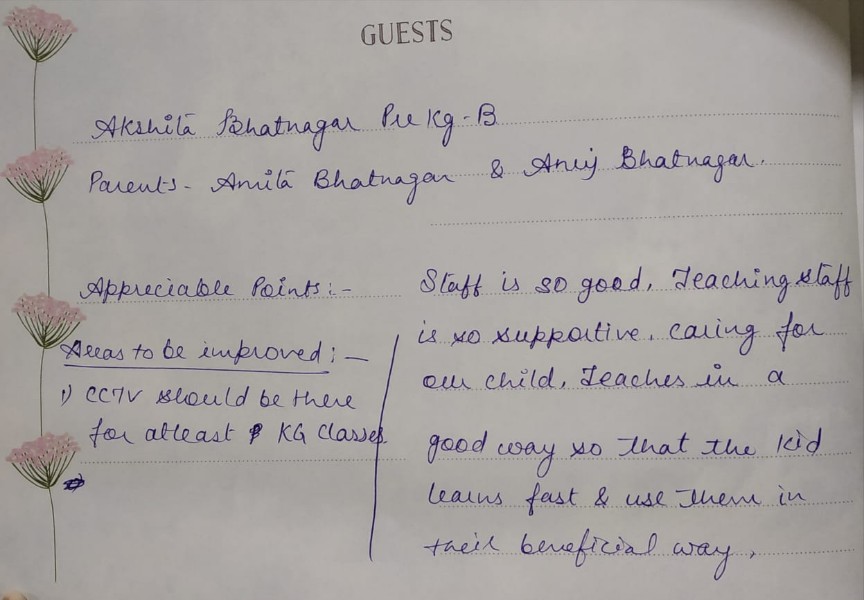 GUESTS
Akshita Bhatnagar Pre Kg-B
Parents- Amita Bhatnagar & Anuj Bhatnagar.
Appreciable Points:-
Staff is so good, Teaching staff
is so supportive, caring for
our child, Teaches in a
good way so that the kid
learns fast & use them in
their beneficial way,
Areas to be improved:-
1) CCTV should be there
for atleast KG Classes